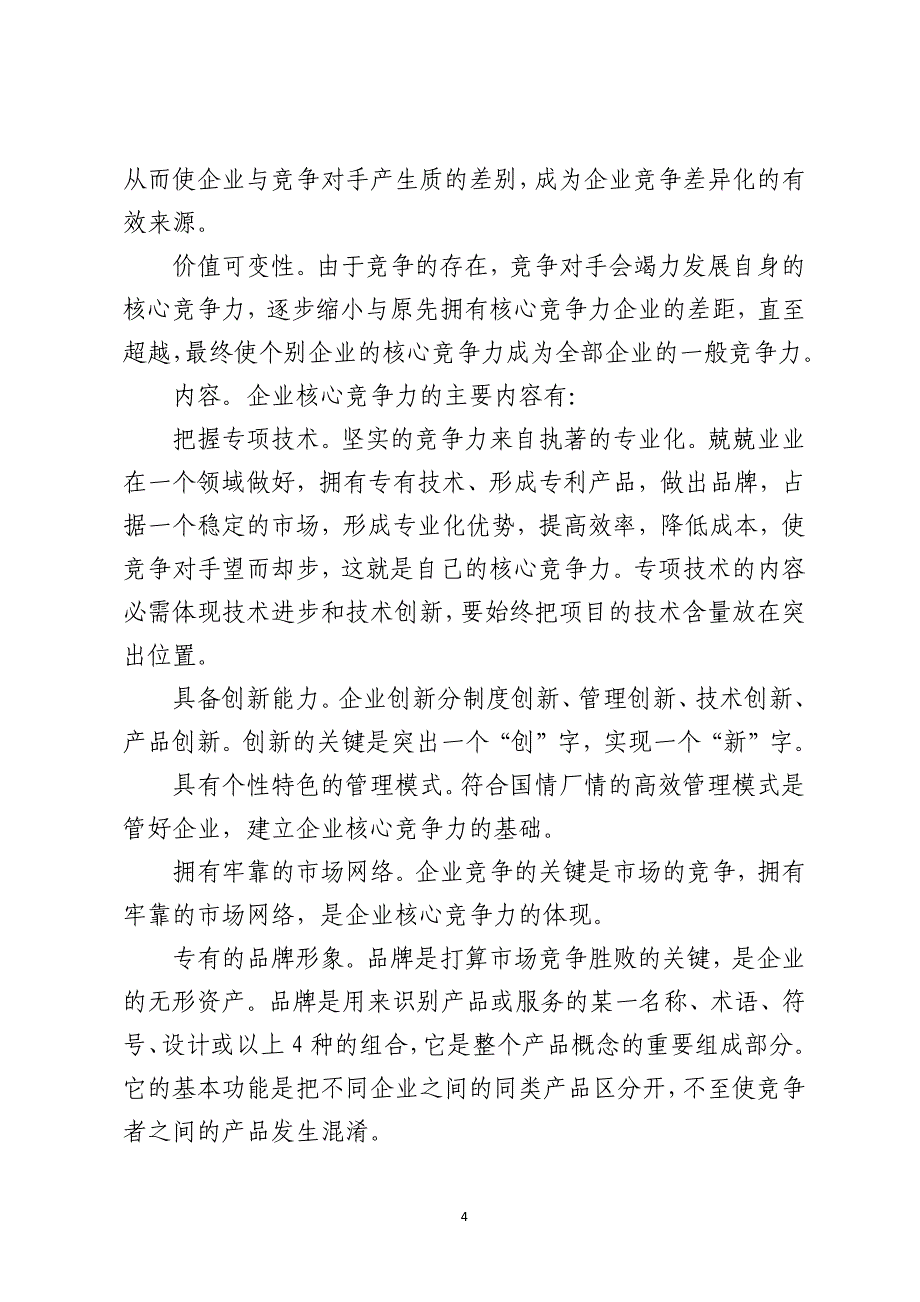 从而使企业与竞争对手产生质的差别，成为企业竞争差异化的有
效来源。
价值可变性。由于竞争的存在，竞争对手会竭力发展自身的
核心竞争力，逐步缩小与原先拥有核心竞争力企业的差距，直至
超越，最终使个别企业的核心竞争力成为全部企业的一般竞争力。
内容。企业核心竞争力的主要内容有：
把握专项技术。坚实的竞争力来自执著的专业化。兢兢业业
在一个领域做好，拥有专有技术、形成专利产品，做出品牌，占
据一个稳定的市场，形成专业化优势，提高效率，降低成本，使
竞争对手望而却步，这就是自己的核心竞争力。专项技术的内容
必需体现技术进步和技术创新，要始终把项目的技术含量放在突
出位置。
具备创新能力。企业创新分制度创新、管理创新、技术创新、
产品创新。创新的关键是突出一个“创”字，实现一个“新”字。
具有个性特色的管理模式。符合国情厂情的高效管理模式是
管好企业，建立企业核心竞争力的基础。
拥有牢靠的市场网络。企业竞争的关键是市场的竞争，拥有
牢靠的市场网络，是企业核心竞争力的体现。
专有的品牌形象。品牌是打算市场竞争胜败的关键，是企业
的无形资产。品牌是用来识别产品或服务的某一名称、术语、符
号、设计或以上 4 种的组合，它是整个产品概念的重要组成部分。
它的基本功能是把不同企业之间的同类产品区分开，不至使竞争
者之间的产品发生混淆。
4